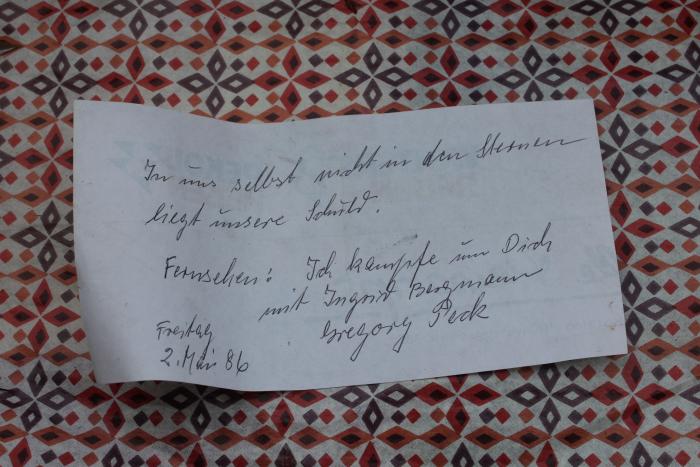 In uns selbst nicht in den Sternen
liegt unsere Schuld.
Fernsehen: Ich kämpfe um Dich
mit Ingrid Bergmann
Gregory Peck
Freitag
2. Mai 86